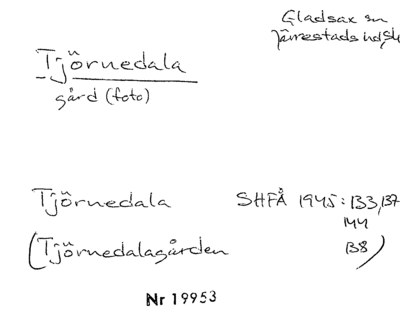 Gladsax sn
Järrestads hd, Sk
Tjörnedala
gård (foto)
Tjörnedala SHFÅ 1945: 133, 137
144
(Tjörnedalagården 138)
Nr 19953